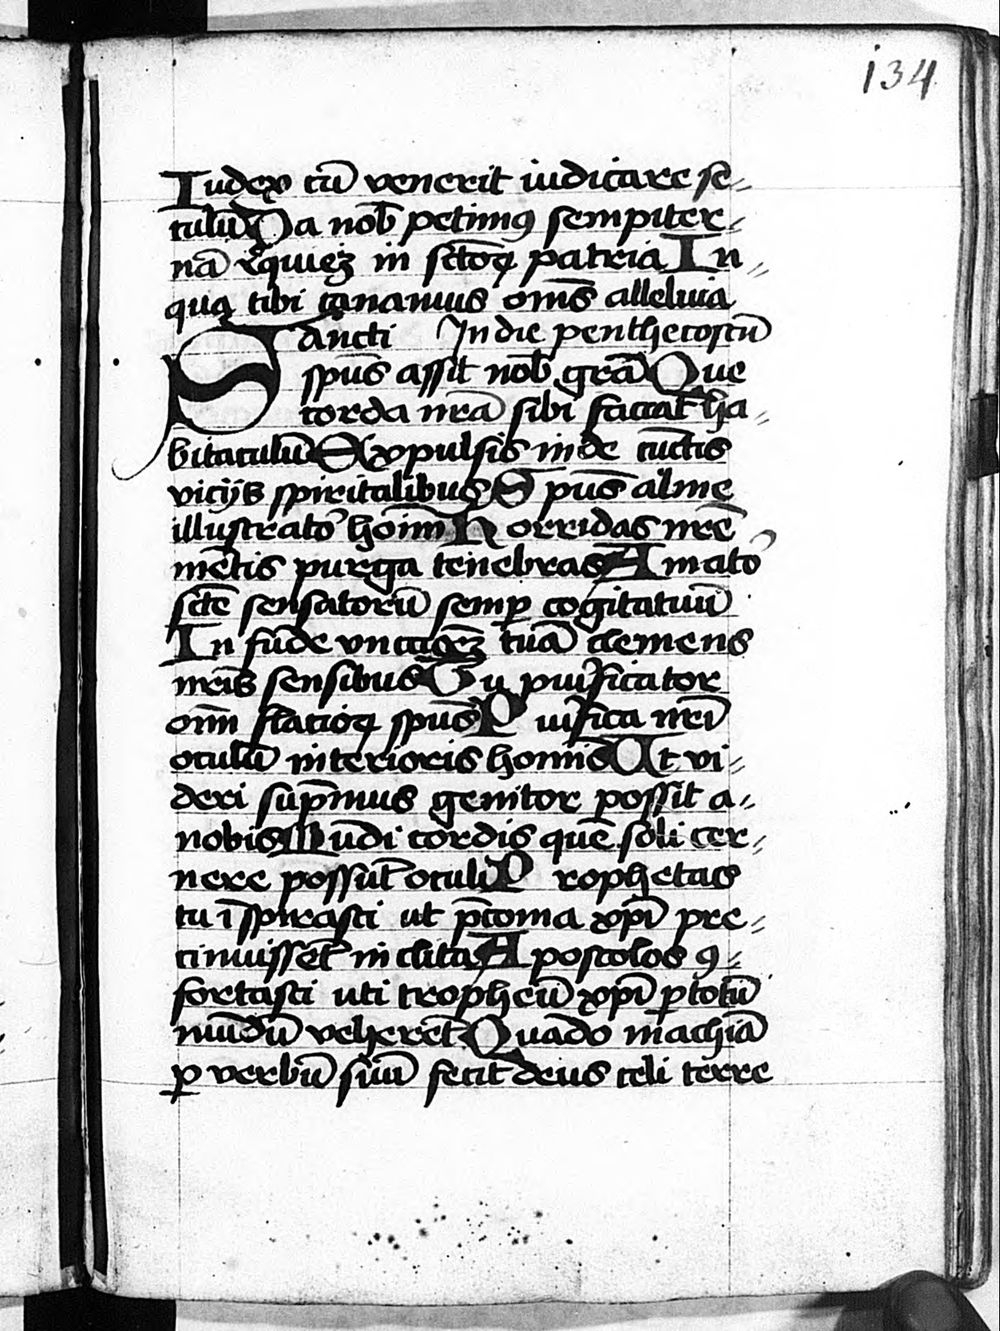 134
Iudex cū venerit iudicare se⸗
culū Da nob̄ petimꝰ sempiter⸗
nā requiēꝫ in sctoꝝ patria In⸗
qua tibi canamus om̄s alleluia
Sancti In die penthecostū
sp̄us assit nob̄ gr̄a Que
corda nr̄a sibi faciat ha⸗
bitaculū Expulsis inde cūctis
vicijs spiritalibus Sp̄us alme
illustratoꝛ hoīm Horridas nr̄e
mētis purga tenebras Amatoꝛ
sc̄te sensatorū semꝑ cogitatuū
Infūde vnccōeꝫ tuā clemens
nr̄is sensibus Tu purificator
om̄ flacioꝝ sp̄us Purifica nr̄i
oculū interioris homīs Ut vi⸗
deri sup̄mus genitor possit a⸗
nobis Mundi cordis quē soli cer⸗
nere possūt oculi Prophetas
tu īspirasti ut p̄conia xp̄i pre⸗
cinuissēt inclita Apostolos ꝯ⸗
fortasti uti tropheū xp̄i ꝑ totū
mūdū veherēt Quādo machīā
ꝑ verbū suū fecit deus celi terre